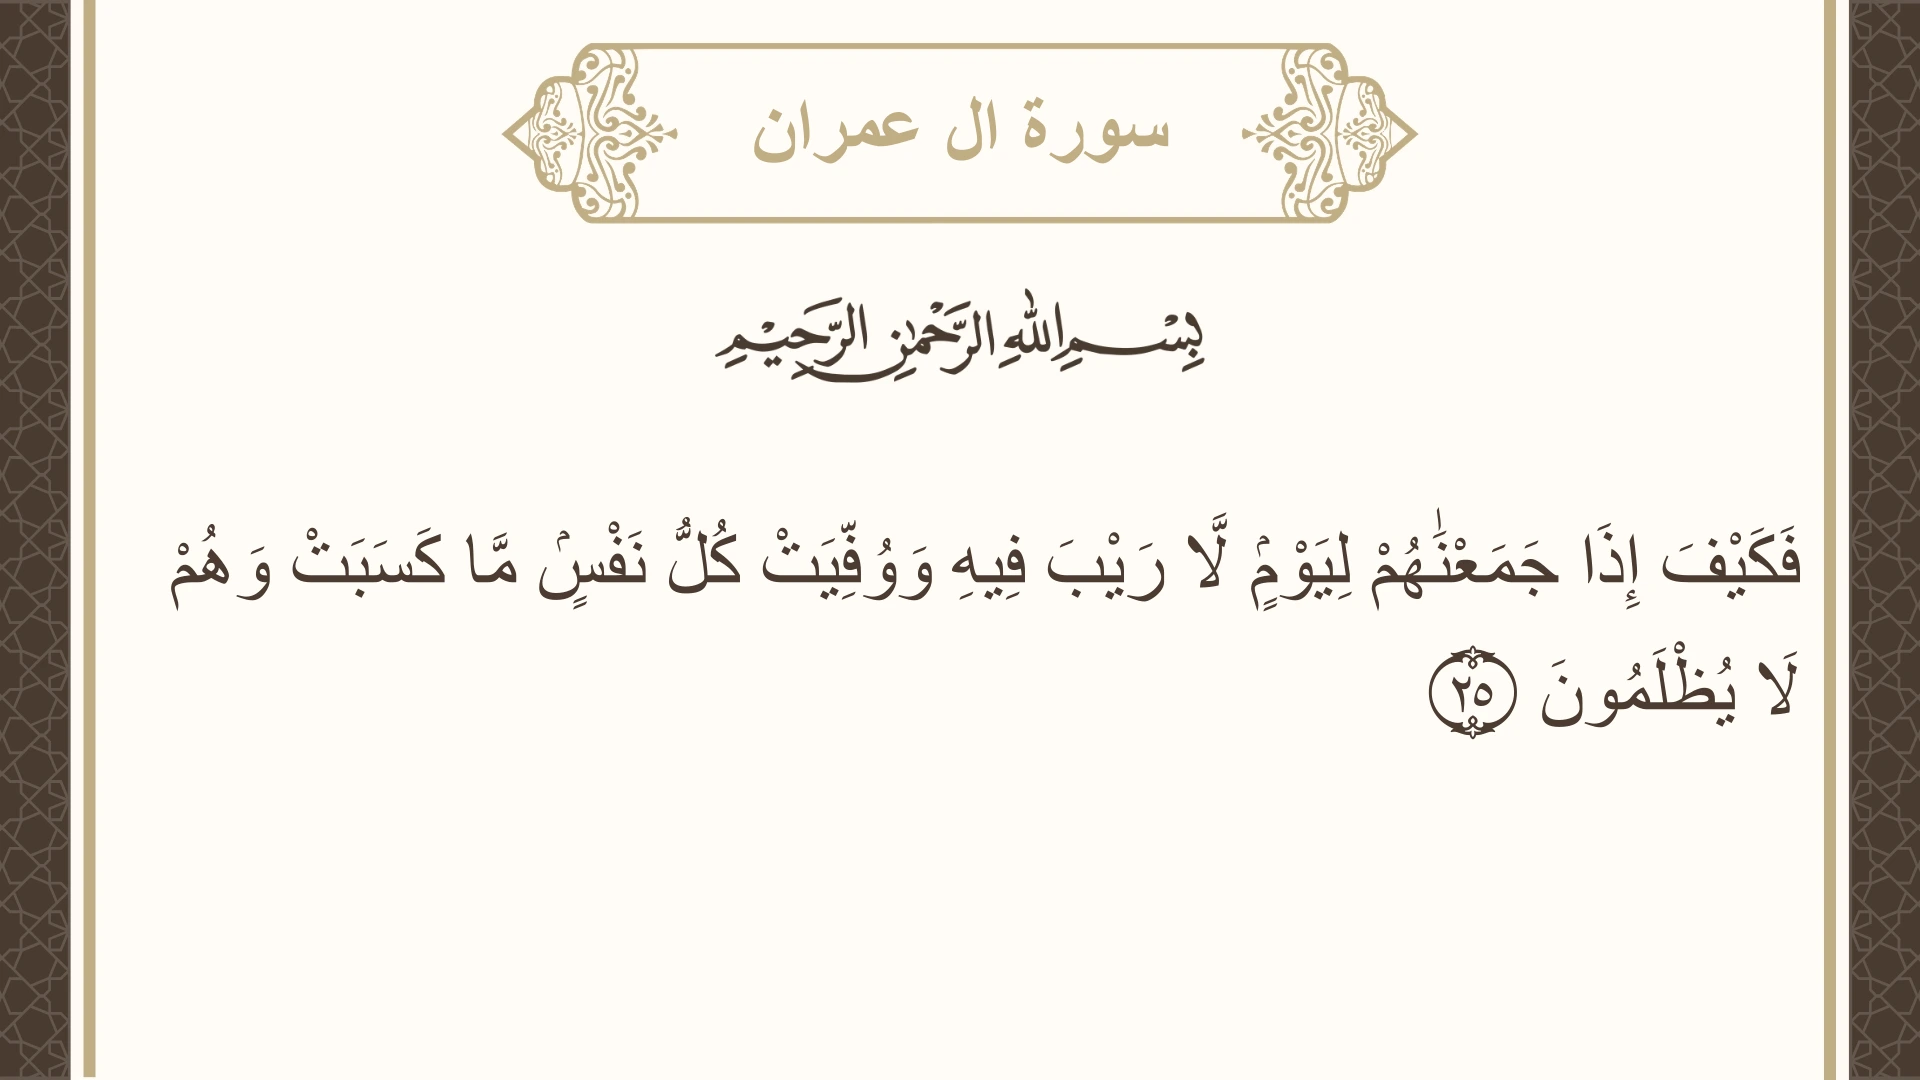 سورة ال عمران
بِسْمِ اللهِ الرَّحْمٰنِ الرَّحِيْمِ
فَكَيْفَ إِذَا جَمَعْنَٰهُمْ لِيَوْمٍۢ لَّا رَيْبَ فِيهِ وَوُفِّيَتْ كُلُّ نَفْسٍۢ مَّا كَسَبَتْ وَهُمْ
لَا يُظْلَمُونَ ٢٥